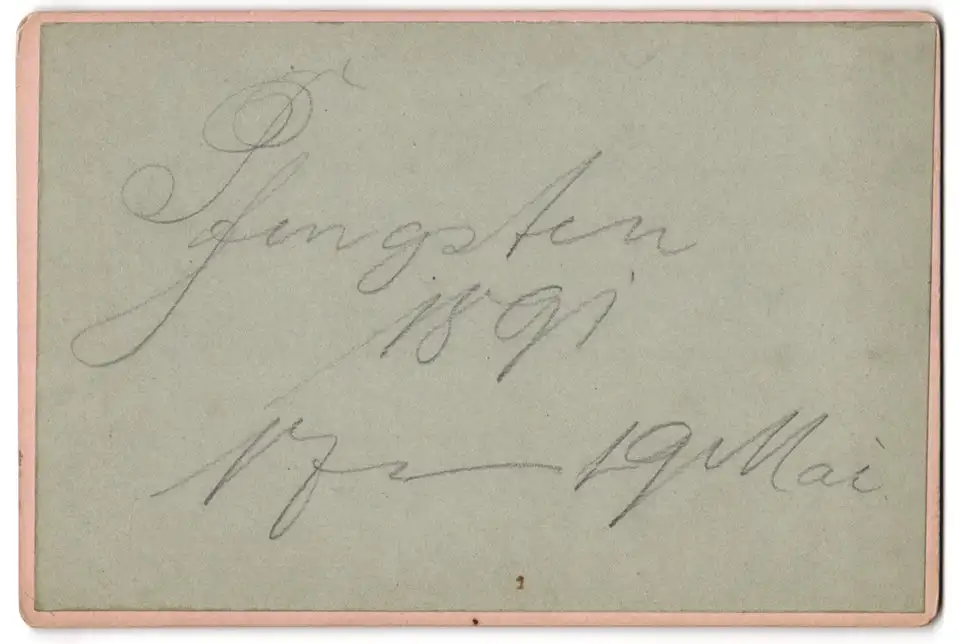 Pfingsten
1891
17 – 19 Mai